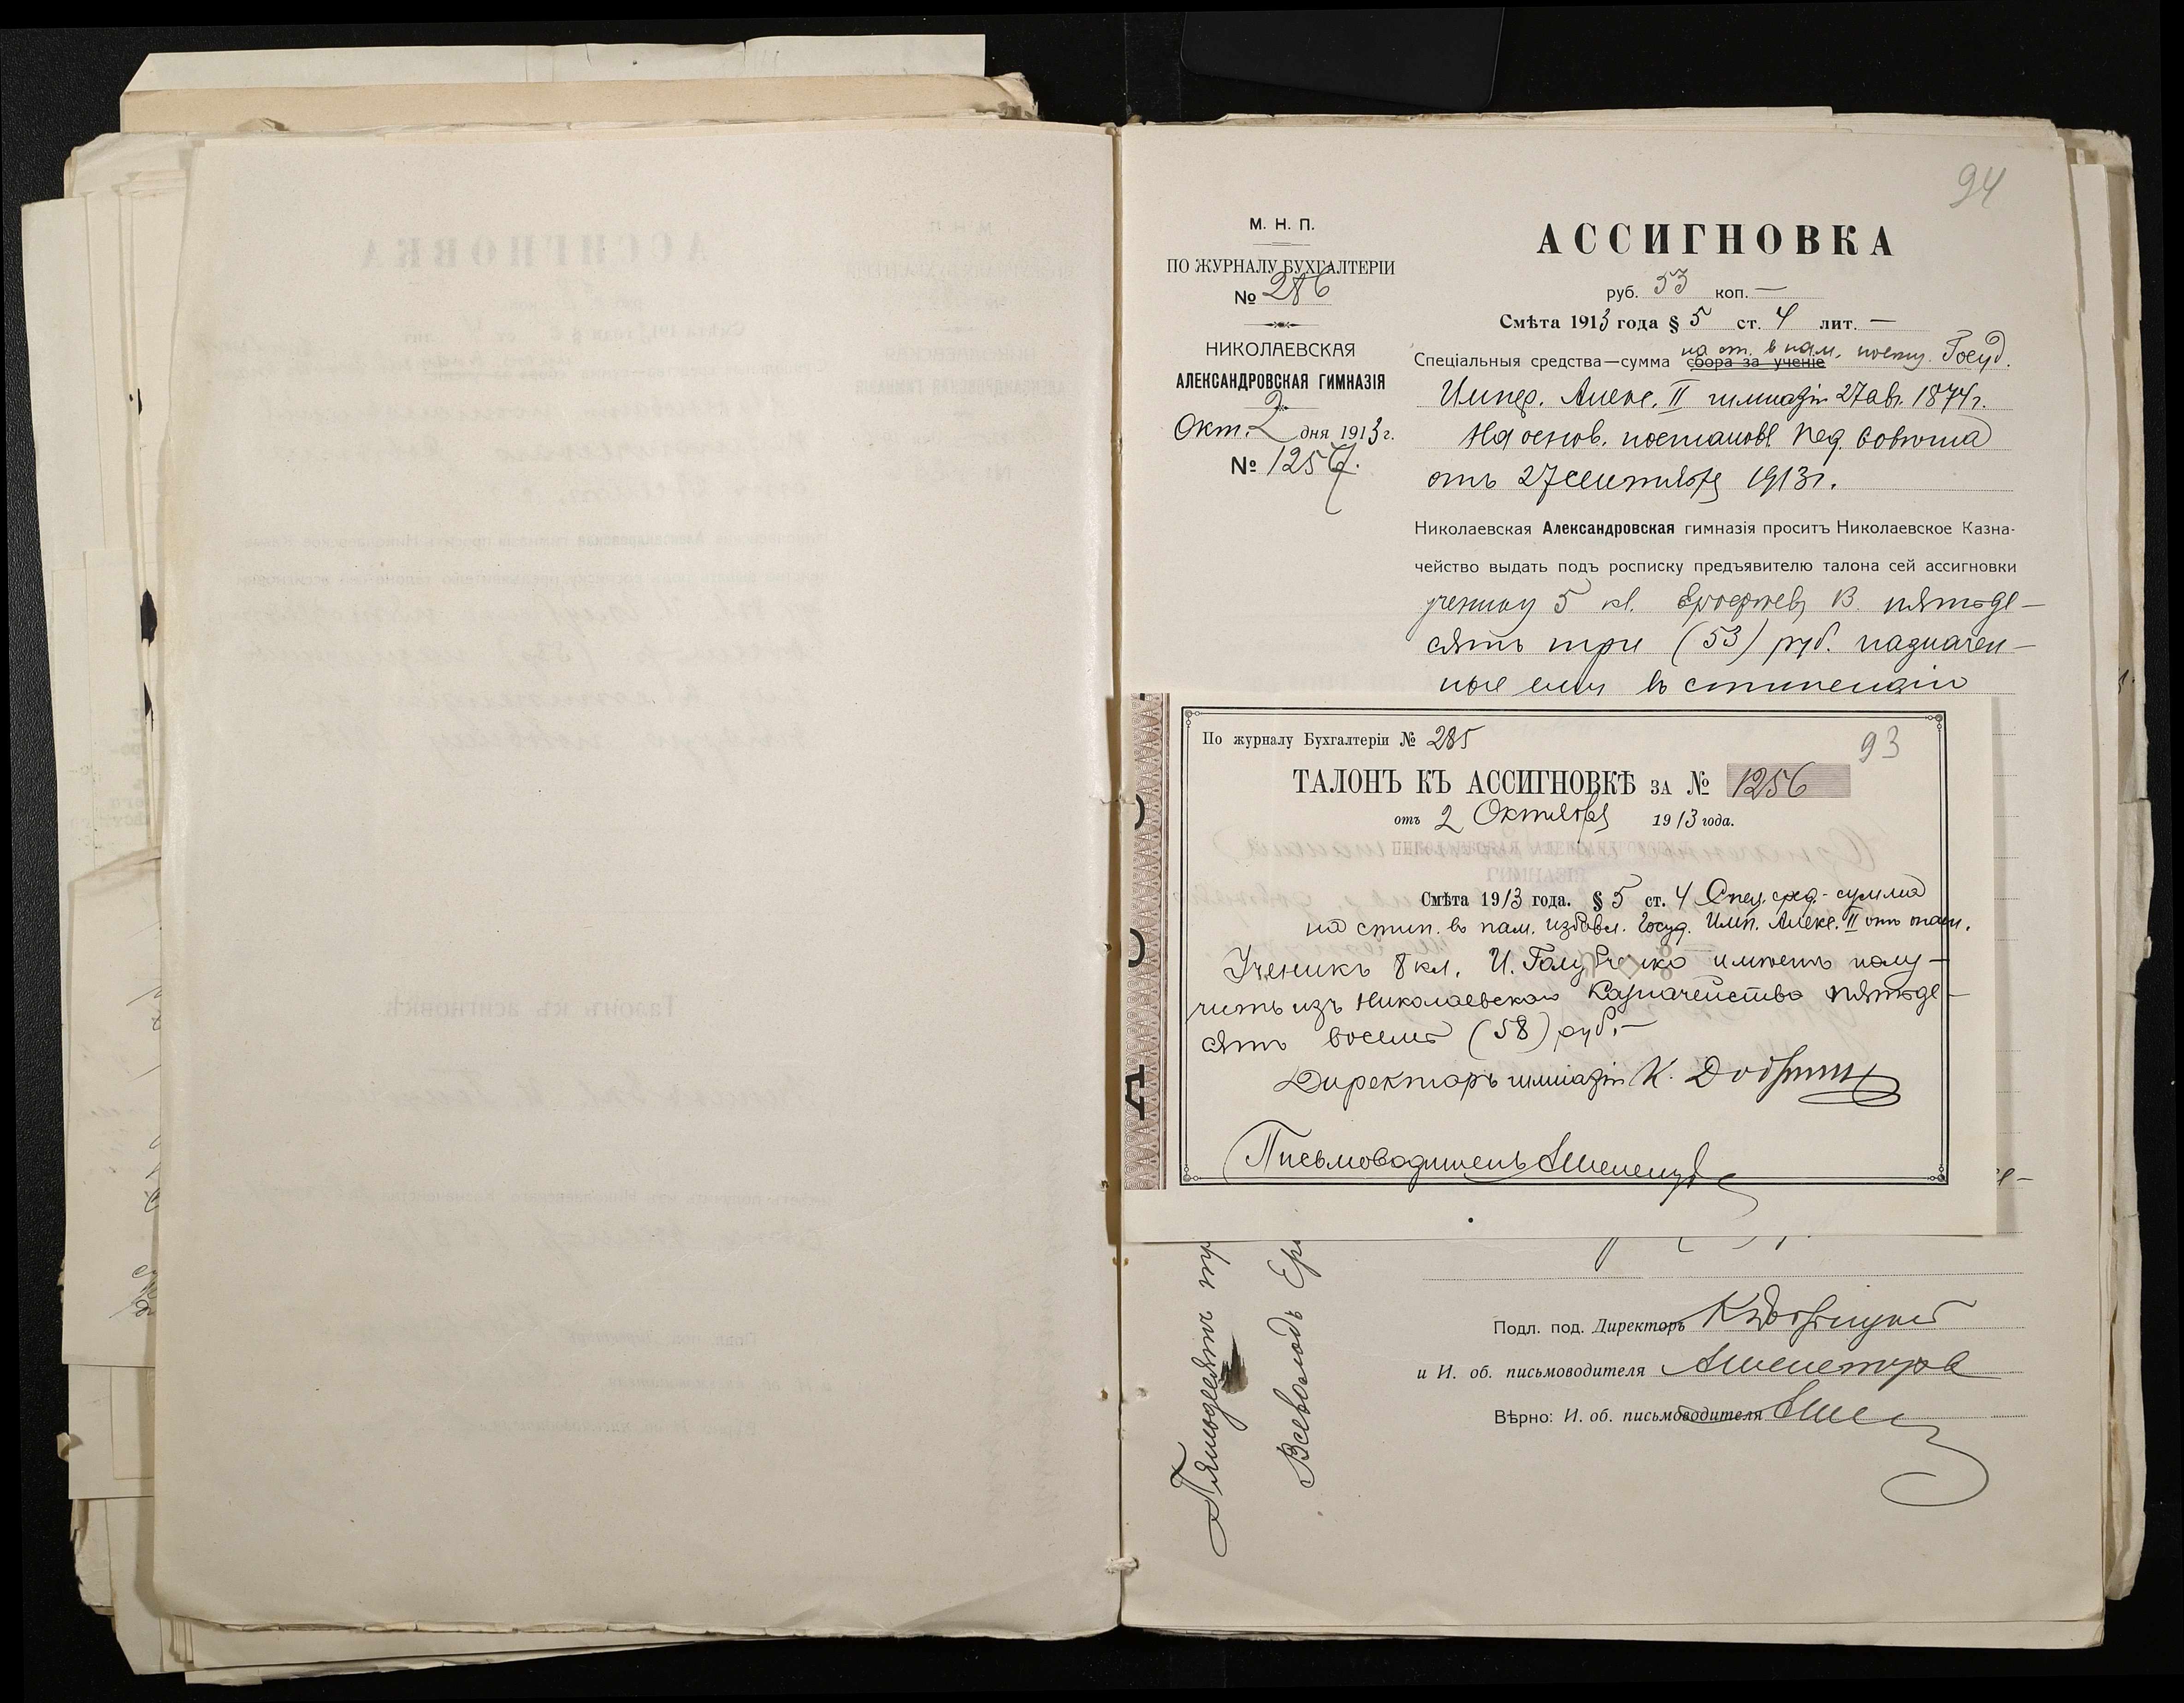 94
М. Н. П.
ПО ЖУРНАЛУ БУХГАЛТЕРІИ
№ 286
НИКОЛАЕВСКАЯ
АЛЕКСАНДРОВСКАЯ ГИМНАЗІЯ
Окт. 2 дня 1913 г.
№ 1257.
АССИГНОВКА
руб. 53 коп. —
Смѣта 1913 года § 5 ст. 4 лит. —
на ст. в пам. посещ. Госуд.
Спеціальныя средства—сумма сбора за ученіе
Импер. Алекс. II гимназіи 27 авг. 1874 г.
На основ. постановл пед. Совѣта
отъ 27 сентября 1913 г.
Николаевская Александровская гимназія проситъ Николаевское Казна-
чейство выдать подъ росписку предъявителю талона сей ассигновки
ученику 5 кл. В. пятьде-
сятъ три (53) руб. назначен-
ные ему въ стипендію
По журналу Бухгалтеріи № 285
93
ТАЛОНЪ КЪ АССИГНОВКѢ ЗА № 1256
отъ 2 Октября 1913 года.
Смѣта 1913 года. § 5 ст. 4 Спец. сред. - сумма
на стип. въ пам. избавл. Госуд. Имп. Алекс. II отъ опасн.
Ученикъ 8 кл. И. Голубченко имѣетъ полу-
чить изъ Николаевскаго Казначейства пятьде-
сятъ восемь (58) руб. —
Директоръ гимназіи К.
Письмоводитель
Пятьдесятъ тр
Всеволодъ Ер
Подл. под. Директоръ
и И. об. письмоводителя
Вѣрно: И. об. письмоводителя